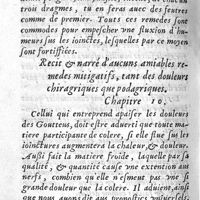 trois dragmes, tu en feras avec des feutres
comme de premier. Toutes ces remedes sont
commodes pour empescher vne fluxion d'hu-
meurs sus les ioinctes, lesquelles par ce moyen
sont fortifiées.
Recit & narré d'aucuns amiables re-
medes mitigatifs, tant des douleurs
chiragriques que podagriques.
Chapitre 10.
Celluy qui entreprend apaiser les douleurs
des Goutteus, doit estre aduerti que toute ma-
tiere participante de colere, si elle flue sus les
ioinctures augmentera la chaleur, & douleur.
Aussi fait la matiere froide, laquelle par sa
qualité, & quantité cause vne extension aus
nerfs, combien qu'elle n'esmeut pas vne si
grande douleur que la colere. Il aduient, ainsi
que nous auons dit aus pronostics vniuersels,